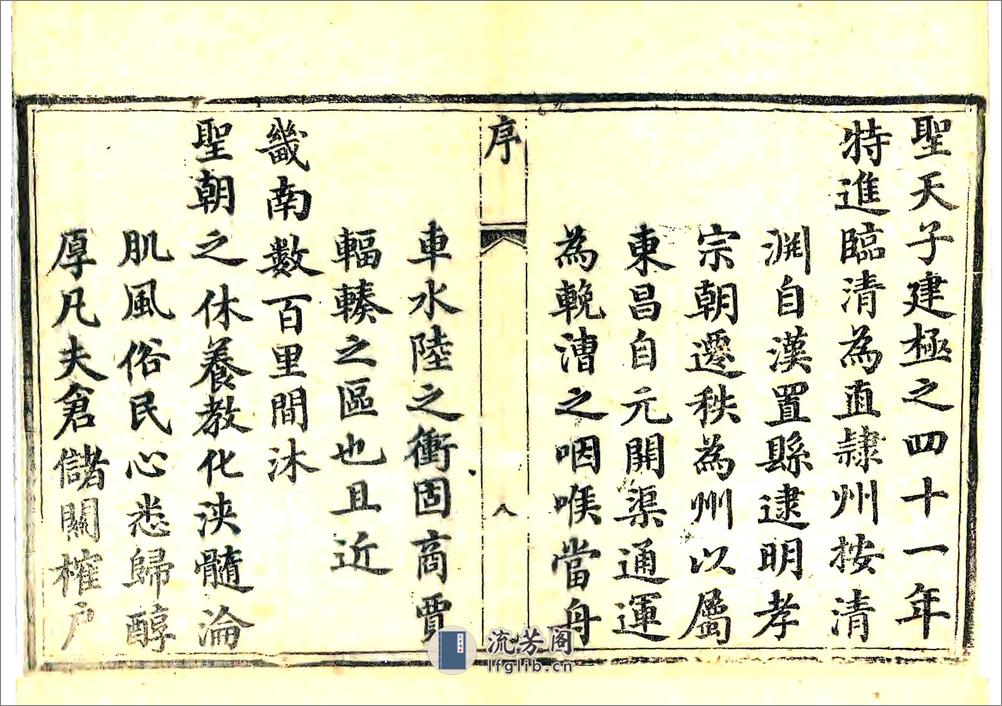 聖天子建極之四十一年
特進臨清為直隸州按清
淵自漢置縣逮明孝
宗朝遷秩為州以屬
東昌自元開渠通運
為輓漕之咽喉當舟
序
八
車水陸之衝固商賈
輻輳之區也且近
畿南數百里間沐
聖朝之休養教化浹髓淪
肌風俗民心悉歸醇
厚凡夫倉儲關榷户
流芳阁
lfglib.cn